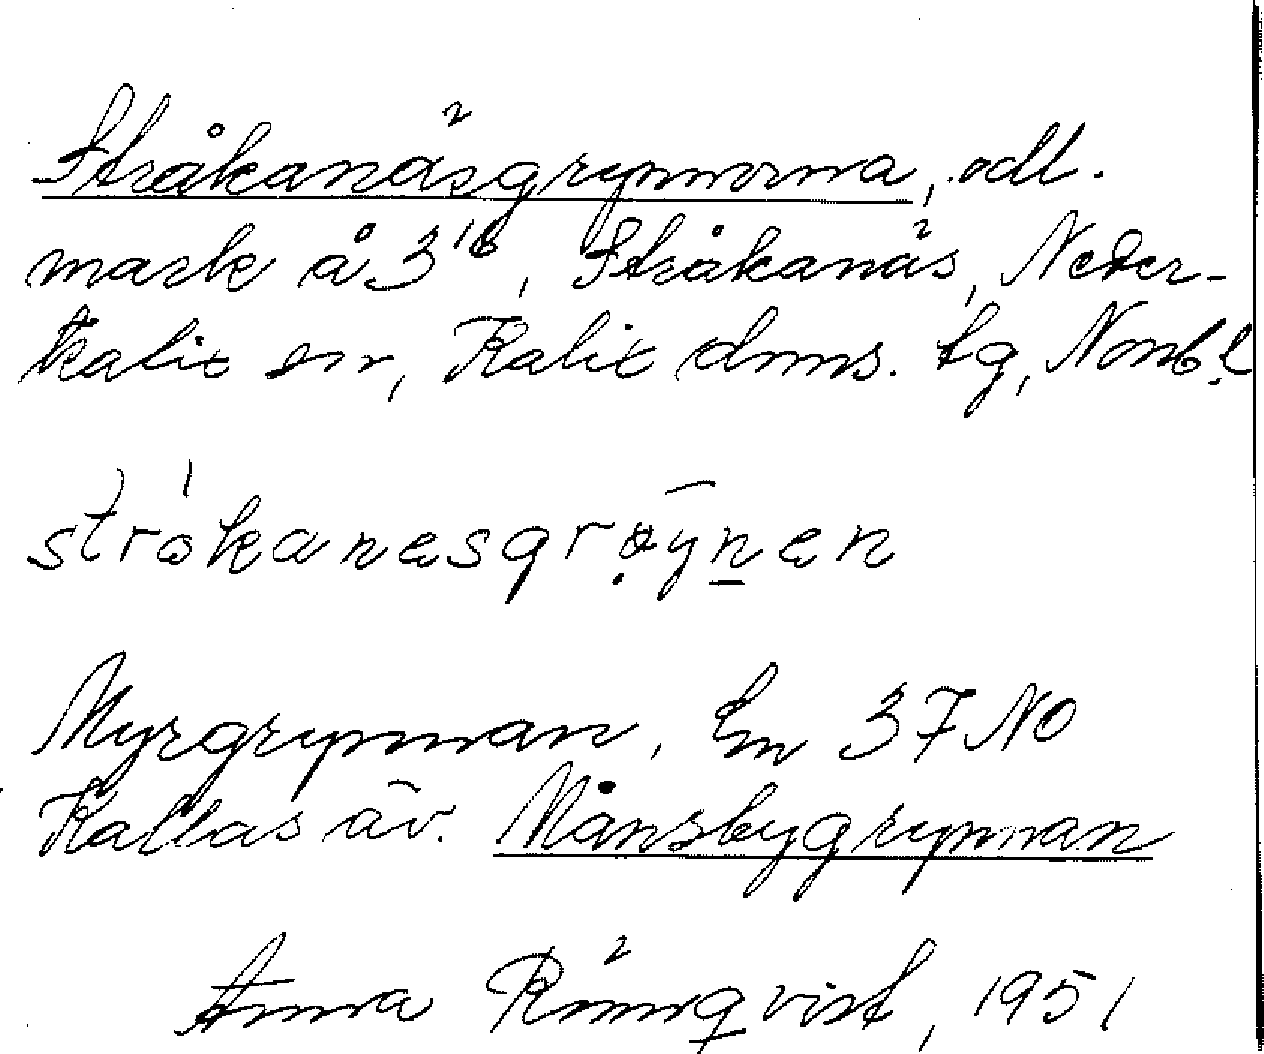 Stråkanäsgrynnorna, odl.
mark å 3¹⁶, Stråkanäs, Neder-
kalix sn, Kalix doms. tg, Nonb.l
stråkanesgrøynen
Myrgrynnan, Em 37 NO
Kallas äv. Månsbygrynnan
Anna Rönnqvist, 1951